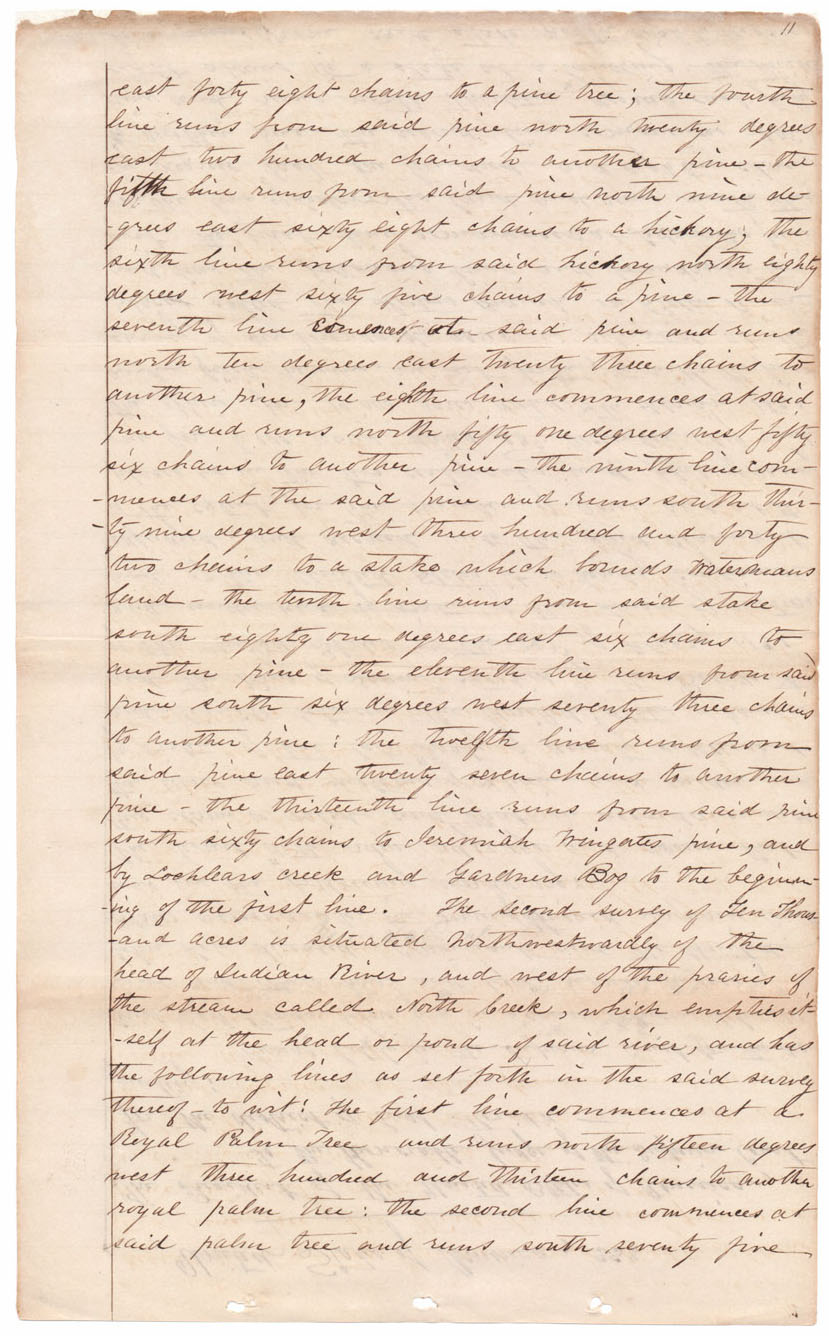 11
east forty eight chains to a pine tree; the fourth
line runs from said pine north twenty degrees
east two hundred chains to another pine – the
fifth line runs from said pine north nine de-
-grees east sixty eight chains to a hickory; the
sixth line runs from said hickory north eighty
degrees west sixty five chains to a pine – the
seventh line at said pine and runs
north ten degrees east twenty three chains to
another pine, the eighth line commences at said
pine and runs north fifty one degrees west fifty
six chains to another pine – the ninth line com-
-mences at the said pine and runs south thir-
-ty nine degrees west three hundred and forty
two chains to a stake which bounds Watermans
land – the tenth line runs from said stake
south eighty one degrees east six chains to
another pine – the eleventh line runs from said
pine south six degrees west seventy three chains
to another pine: the twelfth line runs from
said pine east twenty seven chains to another
pine – the thirteenth line runs from said pine
south sixty chains to Jeremiah Wingates pine, and
by Lochlears creek and Gardners Bog to the beginn-
-ing of the first line. The second survey of Ten Thous-
-and acres is situated Northwestwardly of the
head of Indian River, and west of the praries of
the stream called North Creek, which empties it-
-self at the head or pond of said river, and has
the following lines as set forth in the said survey
thereof – to wit: the first line commences at a
Royal Palm Tree and runs north fifteen degrees
west three hundred and thirteen chains to another
royal palm tree: the second line commences at
said palm tree and runs south seventy five